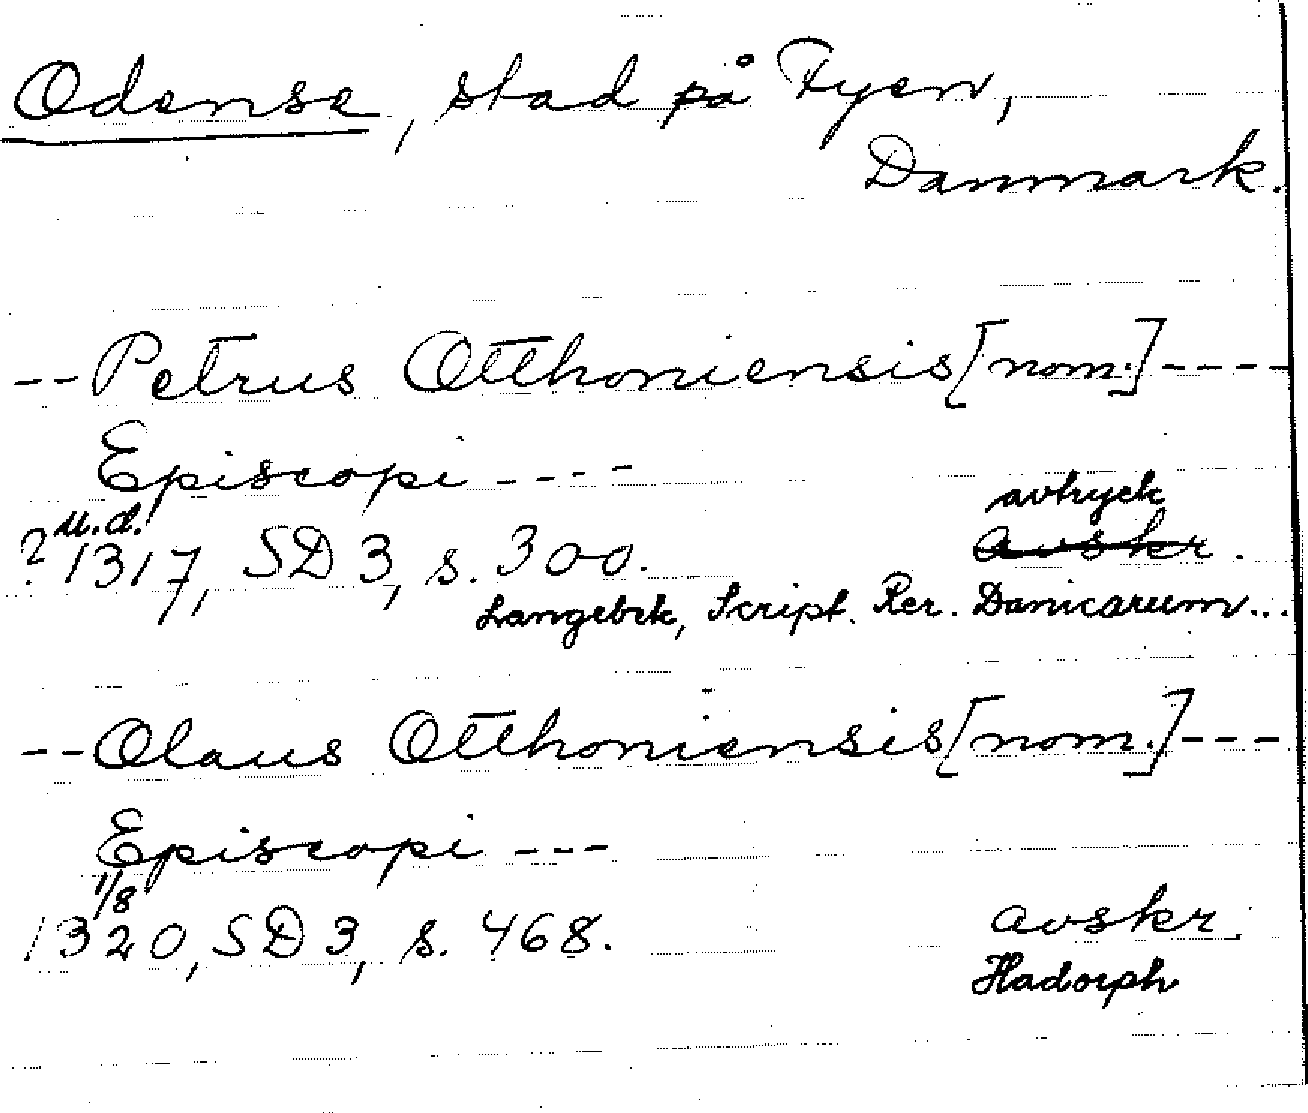 Odense, stad på Fyen,
Danmark.
--Petrus Otthoniensis [nom.]----
Episcopi ---
u.d. avtryck
? 1317, SD 3, s. 300. avskr.
Langebek, Script. Rer. Danicarum...
--Olaus Otthoniensis [nom.]---
Episcopi ---
1/8
1320, SD 3, s. 468. avskr.
Hadorph